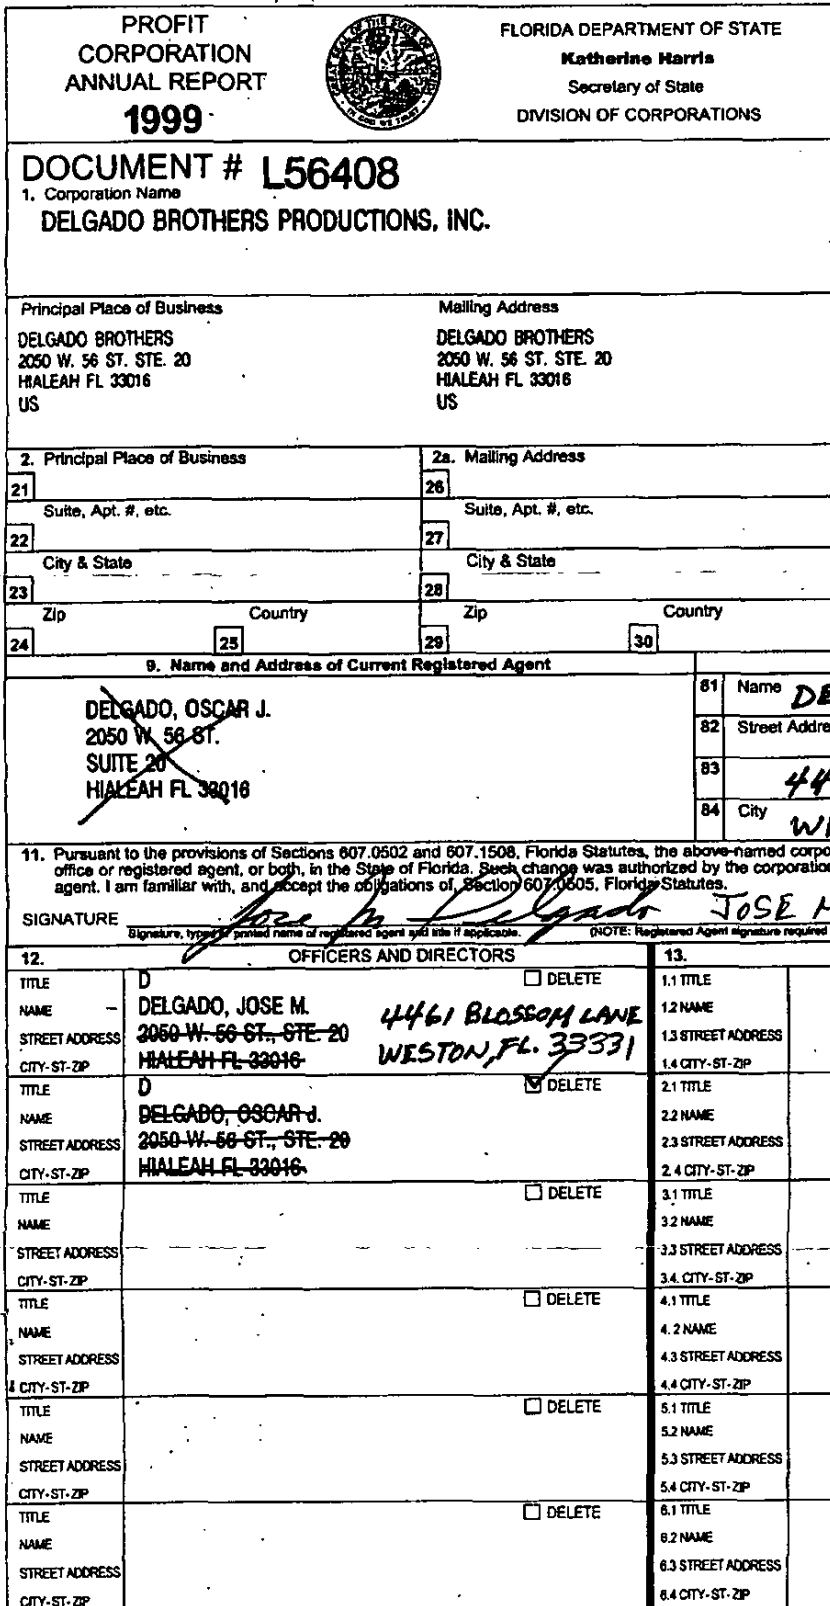 PROFIT
CORPORATION
ANNUAL REPORT
1999
GREAT SEAL OF THE STATE OF FLORIDA
IN GOD WE TRUST
FLORIDA DEPARTMENT OF STATE
Katherine Harris
Secretary of State
DIVISION OF CORPORATIONS
DOCUMENT # L56408
1. Corporation Name
DELGADO BROTHERS PRODUCTIONS, INC.
Principal Place of Business
DELGADO BROTHERS
2050 W. 56 ST. STE. 20
HIALEAH FL 33016
US
Mailing Address
DELGADO BROTHERS
2050 W. 56 ST. STE. 20
HIALEAH FL 33016
US
2. Principal Place of Business
21
Suite, Apt. #, etc.
22
City & State
23
Zip Country
24 25
2a. Mailing Address
26
Suite, Apt. #, etc.
27
City & State
28
Zip Country
29 30
9. Name and Address of Current Registered Agent
DELGADO, OSCAR J.
2050 W. 56 ST.
SUITE 20
HIALEAH FL 33016
81 Name DE
82 Street Addre
83 44
84 City WE
11. Pursuant to the provisions of Sections 607.0502 and 607.1508, Florida Statutes, the above-named corpo
office or registered agent, or both, in the State of Florida. Such change was authorized by the corporation
agent. I am familiar with, and accept the obligations of, Section 607.0505, Florida Statutes.
SIGNATURE Jose M Delgado JOSE M
Signature, typed or printed name of registered agent and title if applicable. (NOTE: Registered Agent signature required
12. OFFICERS AND DIRECTORS
TITLE D DELETE
NAME DELGADO, JOSE M. 4461 BLOSSOM LANE
STREET ADDRESS 2050 W. 56 ST., STE. 20 WESTON, FL. 33331
CITY-ST-ZIP HIALEAH FL 33016
TITLE D DELETE
NAME DELGADO, OSCAR J.
STREET ADDRESS 2050 W. 56 ST., STE. 20
CITY-ST-ZIP HIALEAH FL 33016
TITLE DELETE
NAME
STREET ADDRESS
CITY-ST-ZIP
TITLE DELETE
NAME
STREET ADDRESS
CITY-ST-ZIP
TITLE DELETE
NAME
STREET ADDRESS
CITY-ST-ZIP
TITLE DELETE
NAME
STREET ADDRESS
CITY-ST-ZIP
13.
1.1 TITLE
1.2 NAME
1.3 STREET ADDRESS
1.4 CITY-ST-ZIP
2.1 TITLE
2.2 NAME
2.3 STREET ADDRESS
2.4 CITY-ST-ZIP
3.1 TITLE
3.2 NAME
3.3 STREET ADDRESS
3.4. CITY-ST-ZIP
4.1 TITLE
4.2 NAME
4.3 STREET ADDRESS
4.4 CITY-ST-ZIP
5.1 TITLE
5.2 NAME
5.3 STREET ADDRESS
5.4 CITY-ST-ZIP
6.1 TITLE
6.2 NAME
6.3 STREET ADDRESS
6.4 CITY-ST-ZIP